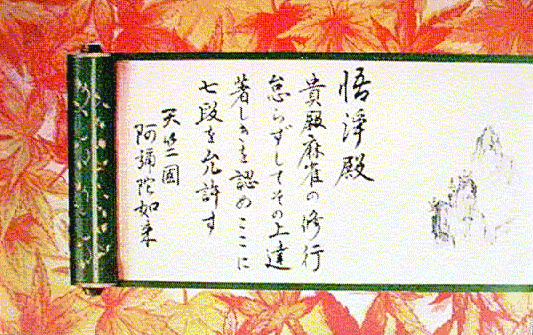 悟浄殿
貴殿麻雀の修行
怠らずしてその上達
著しきを認めここに
七段を允許す
天竺國
阿彌陀如来